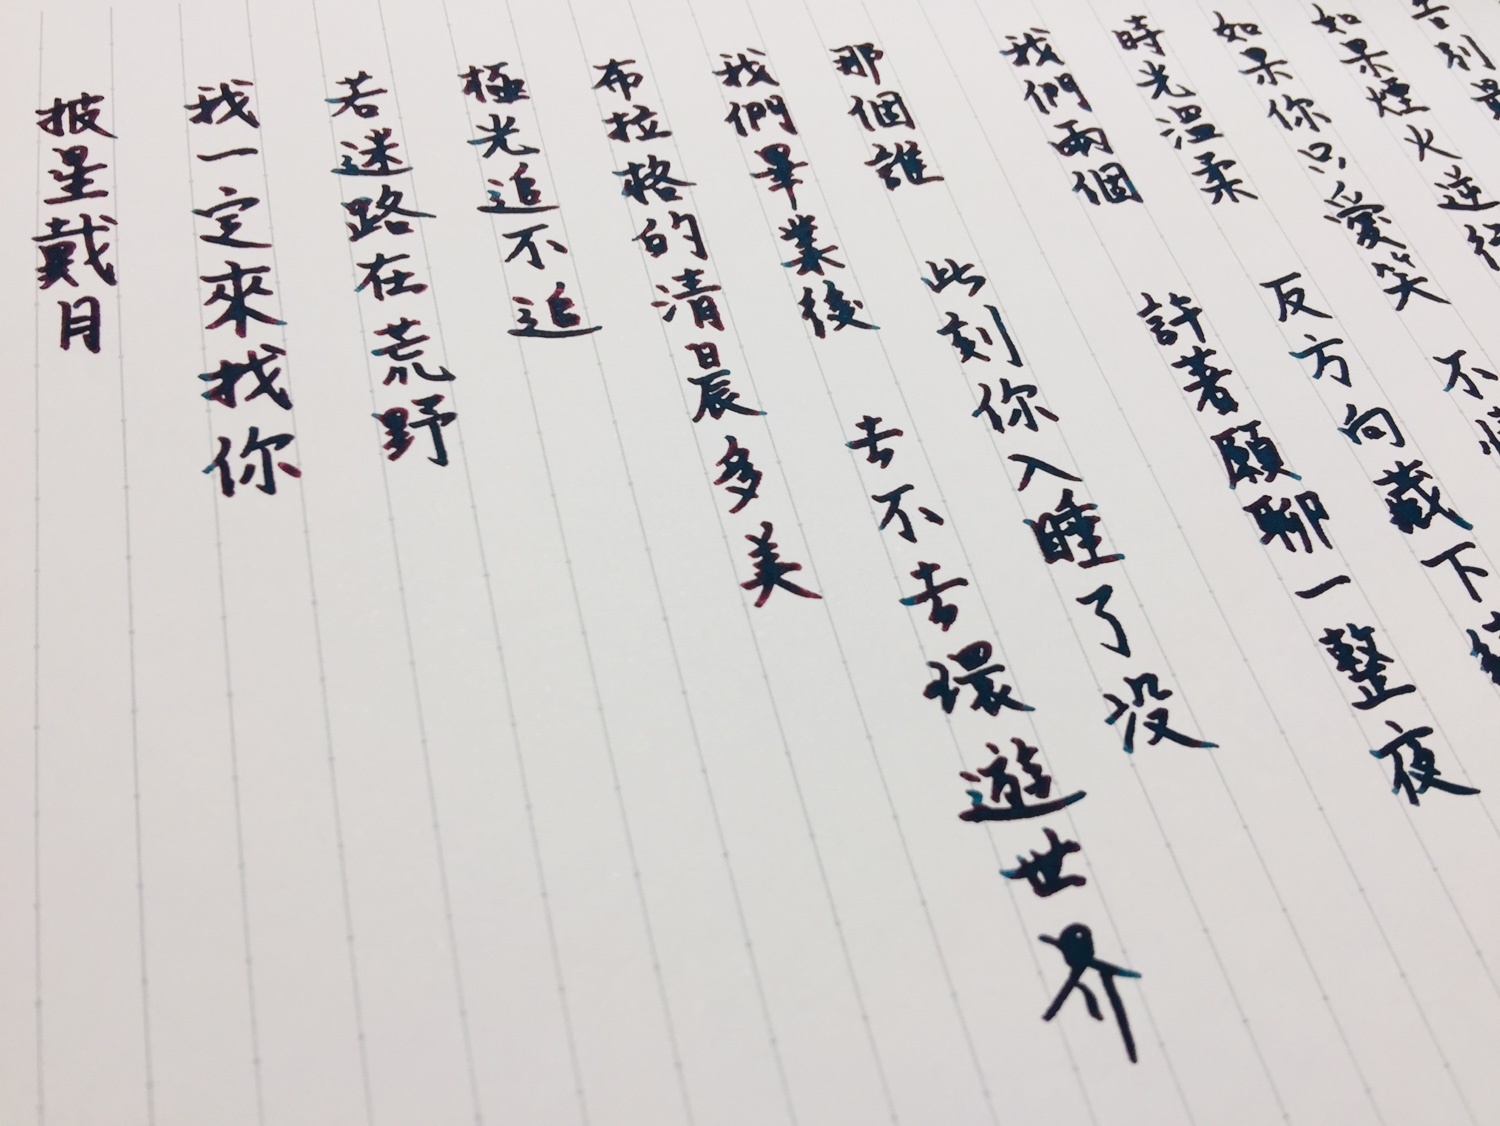 別最
如果煙火逆行
如果你只愛笑 不
時光溫柔 反方向藏下
我們兩個 許著願聊一整夜
那個誰 此刻你入睡了沒
我們畢業後 去不去環遊世界
布拉格的清晨多美
極光追不追
若迷路在荒野
我一定來找你
披星戴月